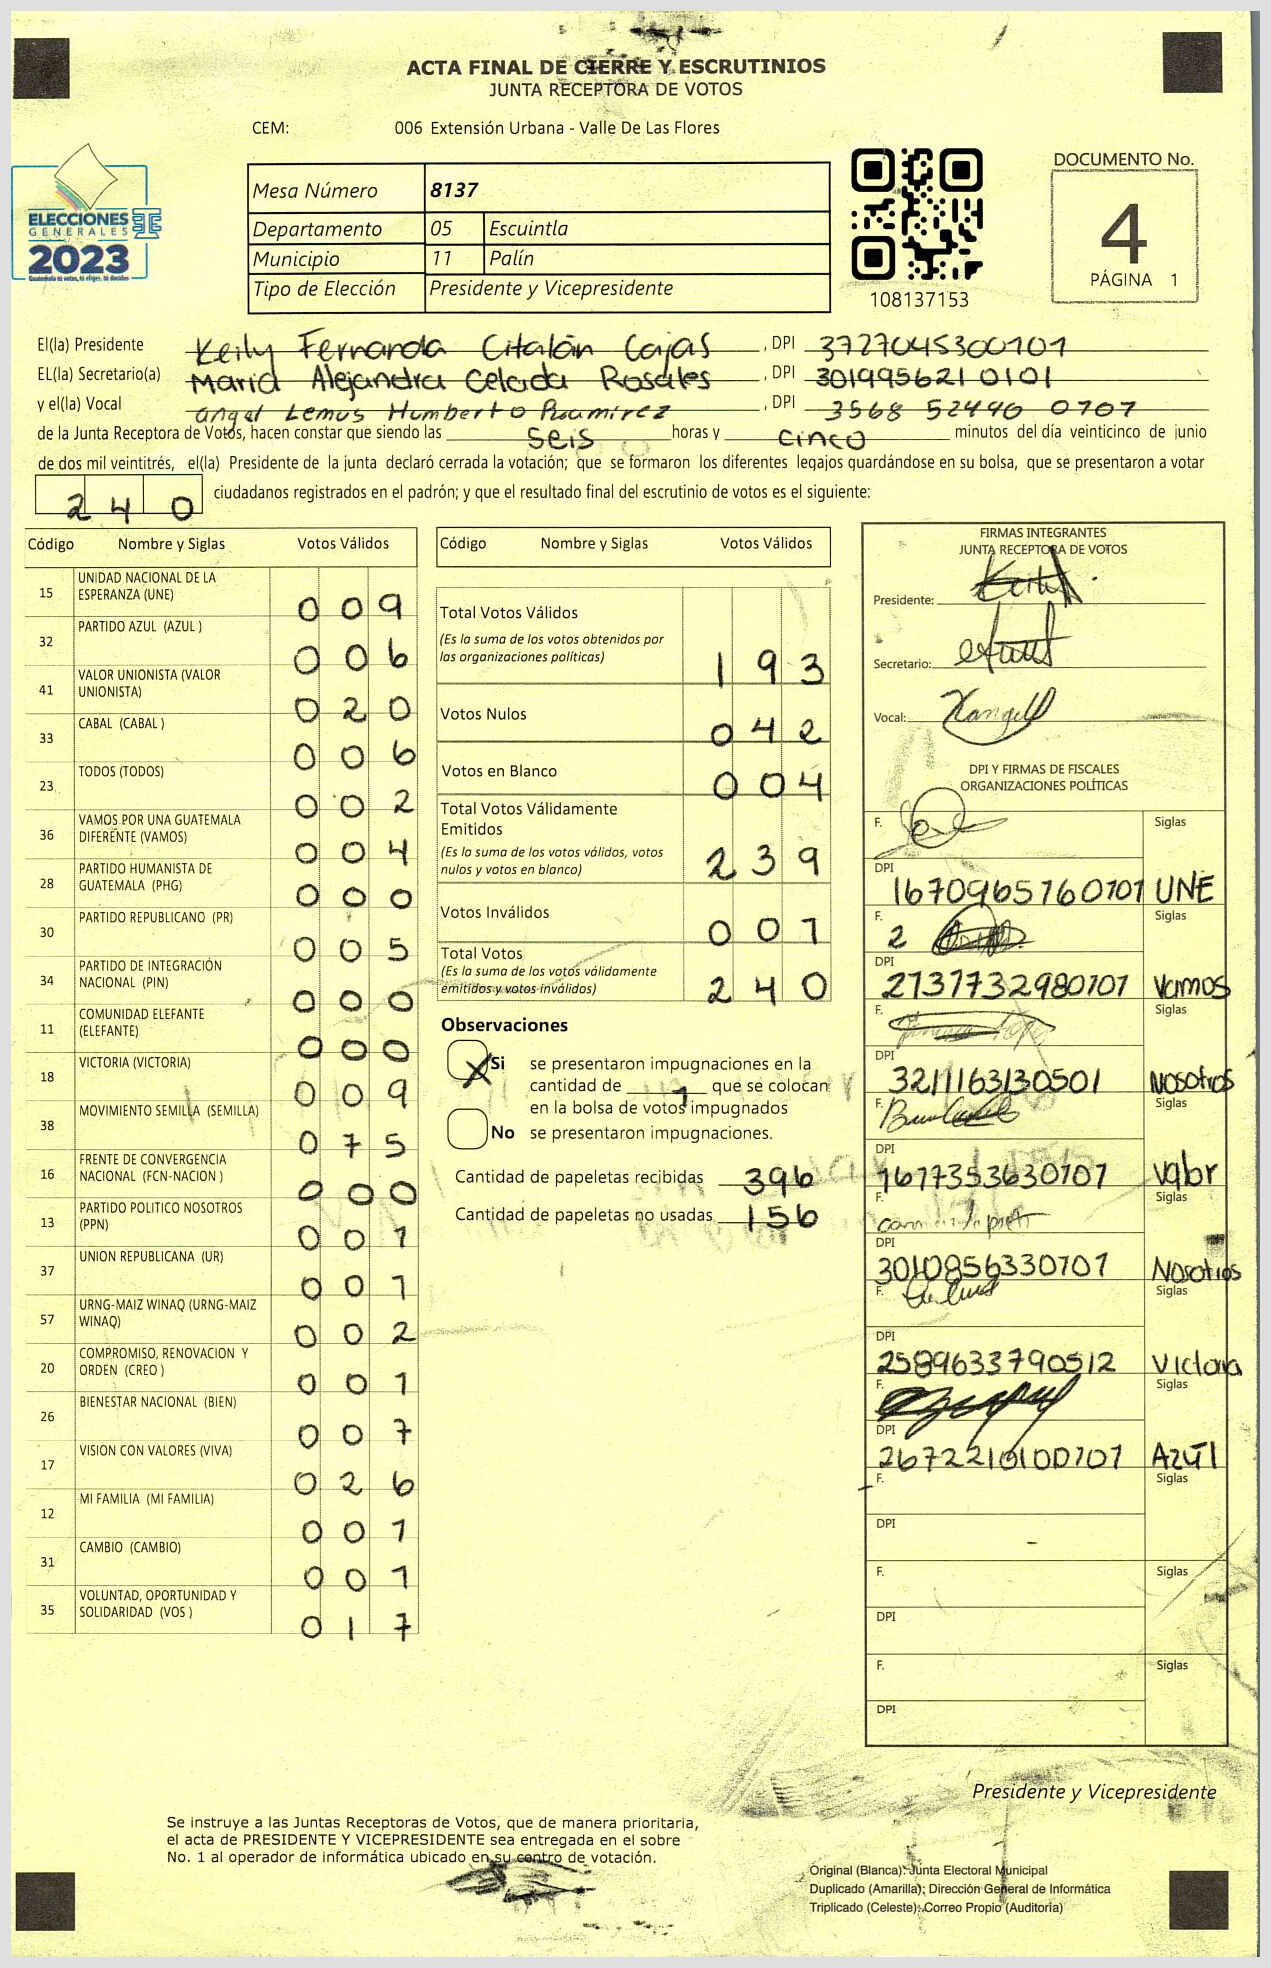 ACTA FINAL DE CIERRE Y ESCRUTINIOS
JUNTA RECEPTORA DE VOTOS
CEM: 006 Extensión Urbana - Valle De Las Flores
ELECCIONES
GENERALES
2023
Guatemala tú votas, tú eliges, tú decides
Mesa Número 8137
Departamento 05 Escuintla
Municipio 11 Palín
Tipo de Elección Presidente y Vicepresidente
108137153
DOCUMENTO No.
4
PÁGINA 1
El(la) Presidente Keily Fernanda Citalán Cajas, DPI 3727045300101
EL(la) Secretario(a) Maria Alejandra Celada Rosales, DPI 3019956210101
y el(la) Vocal Angel Lemus Humberto Ramirez, DPI 3568 52440 0707
de la Junta Receptora de Votos, hacen constar que siendo las seis horas y cinco minutos del día veinticinco de junio
de dos mil veintitrés, el(la) Presidente de la junta declaró cerrada la votación; que se formaron los diferentes legajos guardándose en su bolsa, que se presentaron a votar
240 ciudadanos registrados en el padrón; y que el resultado final del escrutinio de votos es el siguiente:
Código Nombre y Siglas Votos Válidos
15 UNIDAD NACIONAL DE LA ESPERANZA (UNE) 009
32 PARTIDO AZUL (AZUL ) 006
41 VALOR UNIONISTA (VALOR UNIONISTA) 020
33 CABAL (CABAL ) 006
23 TODOS (TODOS) 002
36 VAMOS POR UNA GUATEMALA DIFERENTE (VAMOS) 004
28 PARTIDO HUMANISTA DE GUATEMALA (PHG) 000
30 PARTIDO REPUBLICANO (PR) 005
34 PARTIDO DE INTEGRACIÓN NACIONAL (PIN) 000
11 COMUNIDAD ELEFANTE (ELEFANTE) 000
18 VICTORIA (VICTORIA) 009
38 MOVIMIENTO SEMILLA (SEMILLA) 075
16 FRENTE DE CONVERGENCIA NACIONAL (FCN-NACION ) 000
13 PARTIDO POLITICO NOSOTROS (PPN) 001
37 UNION REPUBLICANA (UR) 001
57 URNG-MAIZ WINAQ (URNG-MAIZ WINAQ) 002
20 COMPROMISO, RENOVACION Y ORDEN (CREO ) 001
26 BIENESTAR NACIONAL (BIEN) 007
17 VISION CON VALORES (VIVA) 026
12 MI FAMILIA (MI FAMILIA) 001
31 CAMBIO (CAMBIO) 001
35 VOLUNTAD, OPORTUNIDAD Y SOLIDARIDAD (VOS ) 017
Código Nombre y Siglas Votos Válidos
Total Votos Válidos
(Es la suma de los votos obtenidos por las organizaciones políticas) 193
Votos Nulos 042
Votos en Blanco 004
Total Votos Válidamente Emitidos
(Es la suma de los votos válidos, votos nulos y votos en blanco) 239
Votos Inválidos 001
Total Votos
(Es la suma de los votos válidamente emitidos y votos inválidos) 240
Observaciones
X Si se presentaron impugnaciones en la
cantidad de 1 que se colocan
en la bolsa de votos impugnados
No se presentaron impugnaciones.
Cantidad de papeletas recibidas 396
Cantidad de papeletas no usadas 156
FIRMAS INTEGRANTES
JUNTA RECEPTORA DE VOTOS
Presidente:
Secretario:
Vocal:
DPI Y FIRMAS DE FISCALES
ORGANIZACIONES POLÍTICAS
F. Siglas
DPI 1670965760101 UNE
F. 2 Siglas
DPI 2737732980101 Vamos
F. Siglas
DPI 3211163130501 Nosotros
F. Siglas
DPI 1677353630101 Valor
F. Siglas
DPI 3010856330101 Nosotros
F. Siglas
DPI 2589633790512 Victoria
F. Siglas
DPI 2672210100101 AZUL
F. Siglas
DPI
F. Siglas
DPI
F. Siglas
DPI
Presidente y Vicepresidente
Se instruye a las Juntas Receptoras de Votos, que de manera prioritaria,
el acta de PRESIDENTE Y VICEPRESIDENTE sea entregada en el sobre
No. 1 al operador de informática ubicado en su centro de votación.
Original (Blanca): Junta Electoral Municipal
Duplicado (Amarilla): Dirección General de Informática
Triplicado (Celeste): Correo Propio (Auditoría)